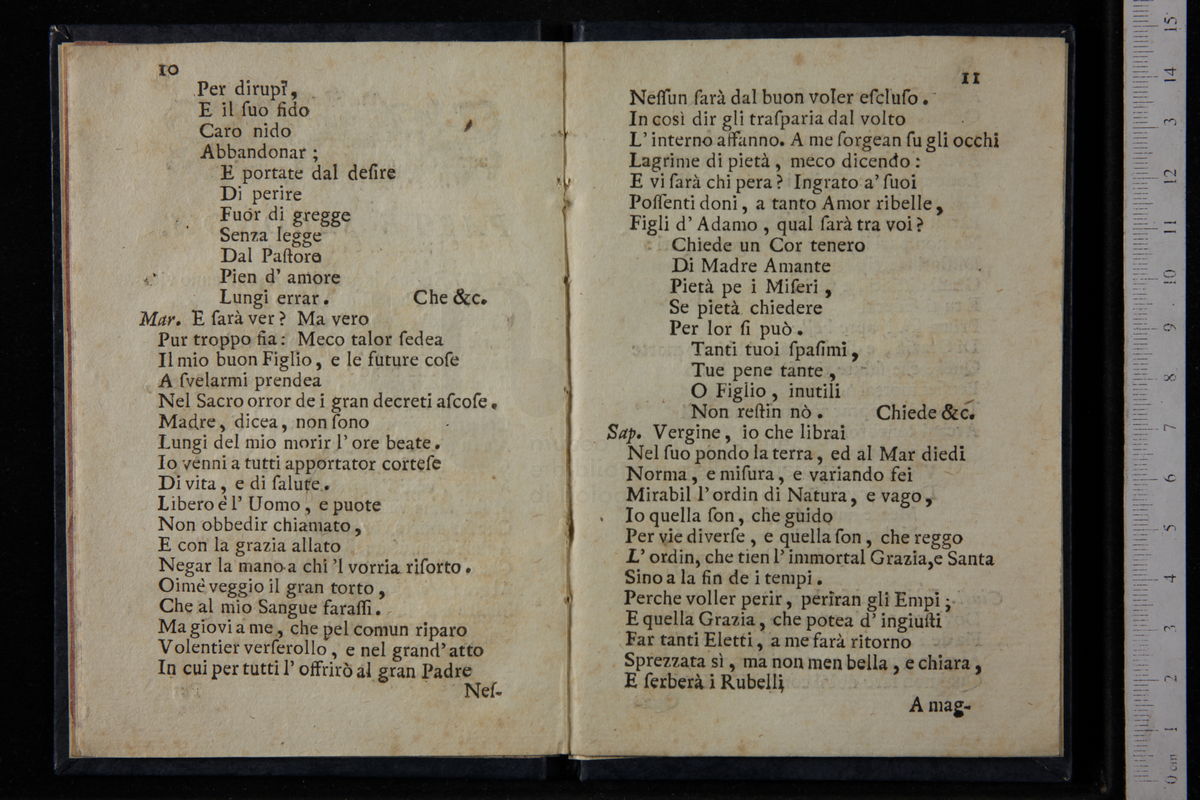 10
Per dirupi,
E il ſuo fido
Caro nido
Abbandonar ;
E portate dal deſire
Di perire
Fuor di gregge
Senza legge
Dal Paſtore
Pien d' amore
Lungi errar. Che &c.
Mar. E ſarà ver ? Ma vero
Pur troppo fia : Meco talor ſedea
Il mio buon Figlio, e le future coſe
A ſvelarmi prendea
Nel Sacro orror de i gran decreti aſcoſe.
Madre, dicea, non ſono
Lungi del mio morir l' ore beate.
Io venni a tutti apportator corteſe
Di vita, e di ſalute.
Libero é l' Uomo, e puote
Non obbedir chiamato,
E con la grazia allato
Negar la mano a chi 'l vorria riſorto.
Oimé veggio il gran torto,
Che al mio Sangue faraſſi.
Ma giovi a me, che pel comun riparo
Volentier verſerollo, e nel grand' atto
In cui per tutti l' offrirò al gran Padre
Neſ-
11
Neſſun ſarà dal buon voler eſcluſo.
In così dir gli traſparia dal volto
L' interno affanno. A me ſorgean ſu gli occhi
Lagrime di pietà, meco dicendo :
E vi ſarà chi pera ? Ingrato a' ſuoi
Poſſenti doni, a tanto Amor ribelle,
Figli d' Adamo, qual ſarà tra voi ?
Chiede un Cor tenero
Di Madre Amante
Pietà pe i Miſeri,
Se pietà chiedere
Per lor ſi può.
Tanti tuoi ſpaſimi,
Tue pene tante,
O Figlio, inutili
Non reſtin nò. Chiede &c.
Sap. Vergine, io che librai
Nel ſuo pondo la terra, ed al Mar diedi
Norma, e miſura, e variando fei
Mirabil l' ordin di Natura, e vago,
Io quella ſon, che guido
Per vie diverſe, e quella ſon, che reggo
L' ordin, che tien l' immortal Grazia, e Santa
Sino a la fin de i tempi.
Perche voller perir, periran gli Empi ;
E quella Grazia, che potea d' ingiuſti
Far tanti Eletti, a me farà ritorno
Sprezzata sì, ma non men bella, e chiara,
E ſerberà i Rubelli
A mag-
0 cm 1 2 3 4 5 6 7 8 9 10 11 12 3 14 15